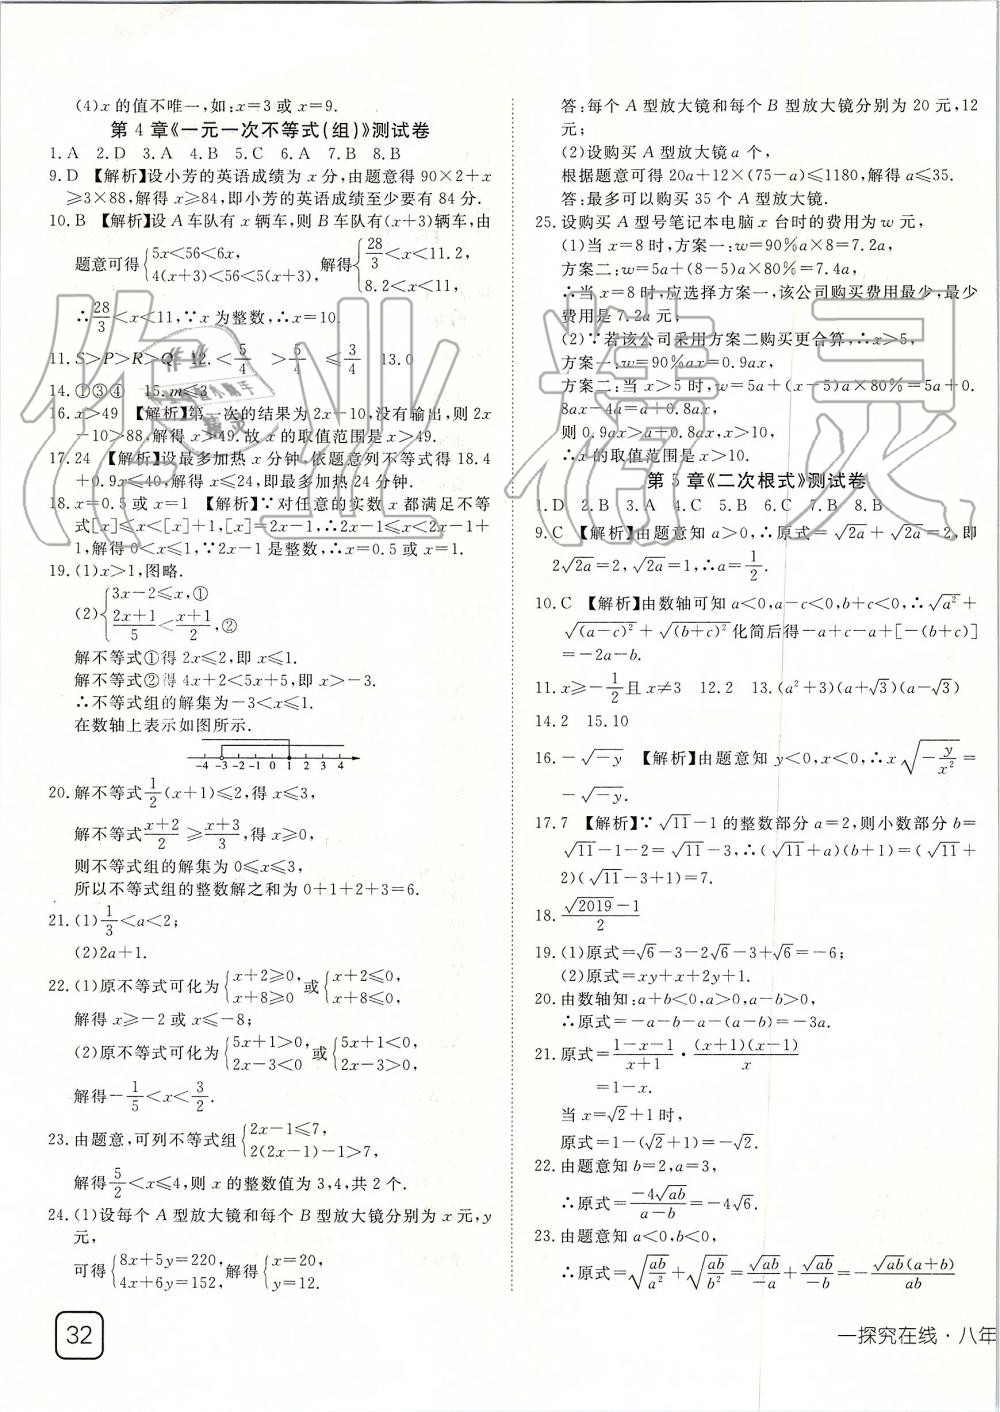 (4)x 的值不唯一,如:x=3 或 x=9.
第 4 章《一元一次不等式(组)》测试卷
1. A 2. D 3. A 4. B 5. C 6. A 7. B 8. B
9. D 【解析】设小芳的英语成绩为 x 分,由题意得 90×2+x
≥3×88,解得 x≥84,即小芳的英语成绩至少要有 84 分.
10. B 【解析】设 A 车队有 x 辆车,则 B 车队有(x+3)辆车,由
题意可得{5x<56<6x, 4(x+3)<56<5(x+3), 解得{28/3<x<11.2, 8.2<x<11,
∴28/3<x<11,∵x 为整数,∴x=10.
11. S>P>R>Q 12. <5/4 >5/4 ≤3/4 13. 0
14. ①③④ 15. m≤3
16. x>49 【解析】第一次的结果为 2x-10,没有输出,则 2x
-10>88,解得 x>49.故 x 的取值范围是 x>49.
17. 24 【解析】设最多加热 x 分钟,依题意列不等式得 18.4
+0.9x≤40,解得 x≤24,即最多加热 24 分钟.
18. x=0.5 或 x=1 【解析】∵对任意的实数 x 都满足不等
式[x]≤x<[x]+1,[x]=2x-1,∴2x-1≤x<2x-1+
1,解得 0<x≤1,∵2x-1 是整数,∴x=0.5 或 x=1.
19. (1)x>1,图略.
(2){3x-2≤x,① (2x+1)/5<(x+1)/2,②
解不等式①得 2x≤2,即 x≤1.
解不等式②得 4x+2<5x+5,即 x>-3.
∴不等式组的解集为-3<x≤1.
在数轴上表示如图所示.
-4 -3 -2 -1 0 1 2 3 4
20. 解不等式1/2(x+1)≤2,得 x≤3,
解不等式(x+2)/2≥(x+3)/3,得 x≥0,
则不等式组的解集为 0≤x≤3,
所以不等式组的整数解之和为 0+1+2+3=6.
21. (1)1/3<a<2;
(2)2a+1.
22. (1)原不等式可化为{x+2≥0, x+8≥0 或{x+2≤0, x+8≤0,
解得 x≥-2 或 x≤-8;
(2)原不等式可化为{5x+1>0, 2x-3<0 或{5x+1<0, 2x-3>0,
解得-1/5<x<3/2.
23. 由题意,可列不等式组{2x-1≤7, 2(2x-1)-1>7,
解得5/2<x≤4,则 x 的整数值为 3,4,共 2 个.
24. (1)设每个 A 型放大镜和每个 B 型放大镜分别为 x 元,y
元,
可得{8x+5y=220, 4x+6y=152, 解得{x=20, y=12.
32
答:每个 A 型放大镜和每个 B 型放大镜分别为 20 元,12
元;
(2)设购买 A 型放大镜 a 个,
根据题意可得 20a+12×(75-a)≤1180,解得 a≤35.
答:最多可以购买 35 个 A 型放大镜.
25. 设购买 A 型号笔记本电脑 x 台时的费用为 w 元,
(1)当 x=8 时,方案一:w=90%a×8=7.2a,
方案二:w=5a+(8-5)a×80%=7.4a,
∴当 x=8 时,应选择方案一,该公司购买费用最少,最少
费用是 7.2a 元;
(2)∵若该公司采用方案二购买更合算,∴x>5,
方案一:w=90%ax=0.9ax,
方案二:当 x>5 时,w=5a+(x-5)a×80%=5a+0.
8ax-4a=a+0.8ax,
则 0.9ax>a+0.8ax,x>10,
∴x 的取值范围是 x>10.
第 5 章《二次根式》测试卷
1. D 2. B 3. A 4. C 5. B 6. C 7. B 8. B
9. C 【解析】由题意知 a>0,∴原式=√2a+√2a=2,即
2√2a=2,√2a=1,∴a=1/2.
10. C 【解析】由数轴可知 a<0,a-c<0,b+c<0,∴√a²+
√(a-c)²+√(b+c)²化简后得-a+c-a+[-(b+c)]
=-2a-b.
11. x≥-1/2且 x≠3 12. 2 13. (a²+3)(a+√3)(a-√3)
14. 2 15. 10
16. -√-y 【解析】由题意知 y<0,x<0,∴x√(-y/x²)=
-√-y.
17. 7 【解析】∵√11-1 的整数部分 a=2,则小数部分 b=
√11-1-2=√11-3,∴(√11+a)(b+1)=(√11+
2)(√11-3+1)=7.
18. (√2019-1)/2
19. (1)原式=√6-3-2√6-3+√6=-6;
(2)原式=xy+x+2y+1.
20. 由数轴知:a+b<0,a>0,a-b>0,
∴原式=-a-b-a-(a-b)=-3a.
21. 原式=(1-x-1)/(x+1)·(x+1)(x-1)/x
=1-x.
当 x=√2+1 时,
原式=1-(√2+1)=-√2.
22. 由题意知 b=2,a=3,
∴原式=-4√ab/(a-b)=-4√6.
23. 由题意知 a<0,b<0,
∴原式=√(ab/a²)+√(ab/b²)=√ab/-a+√ab/-b=-√ab(a+b)/ab
一探究在线·八年
作业精灵